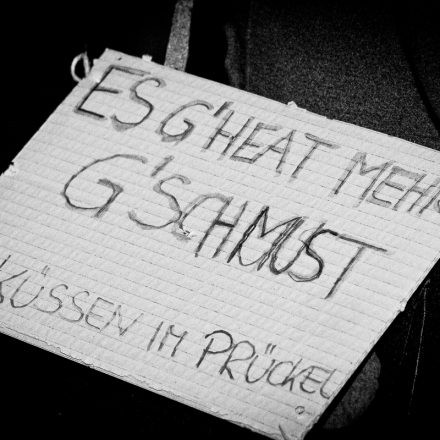 ES G'HEAT MEHR
G'SCHMUST
KÜSSEN IM PRÜCKEL